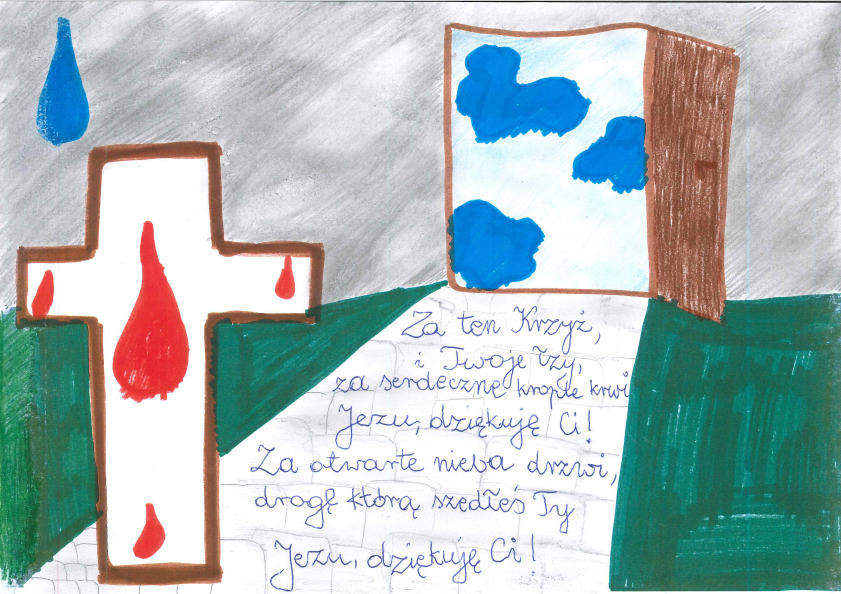 Za ten Krzyż,
i Twoje łzy,
za serdecznę krople krwi
Jezu, dziękuję Ci!
Za otwarte nieba drzwi,
drogę którą szedłeś Ty
Jezu, dziękuję Ci!